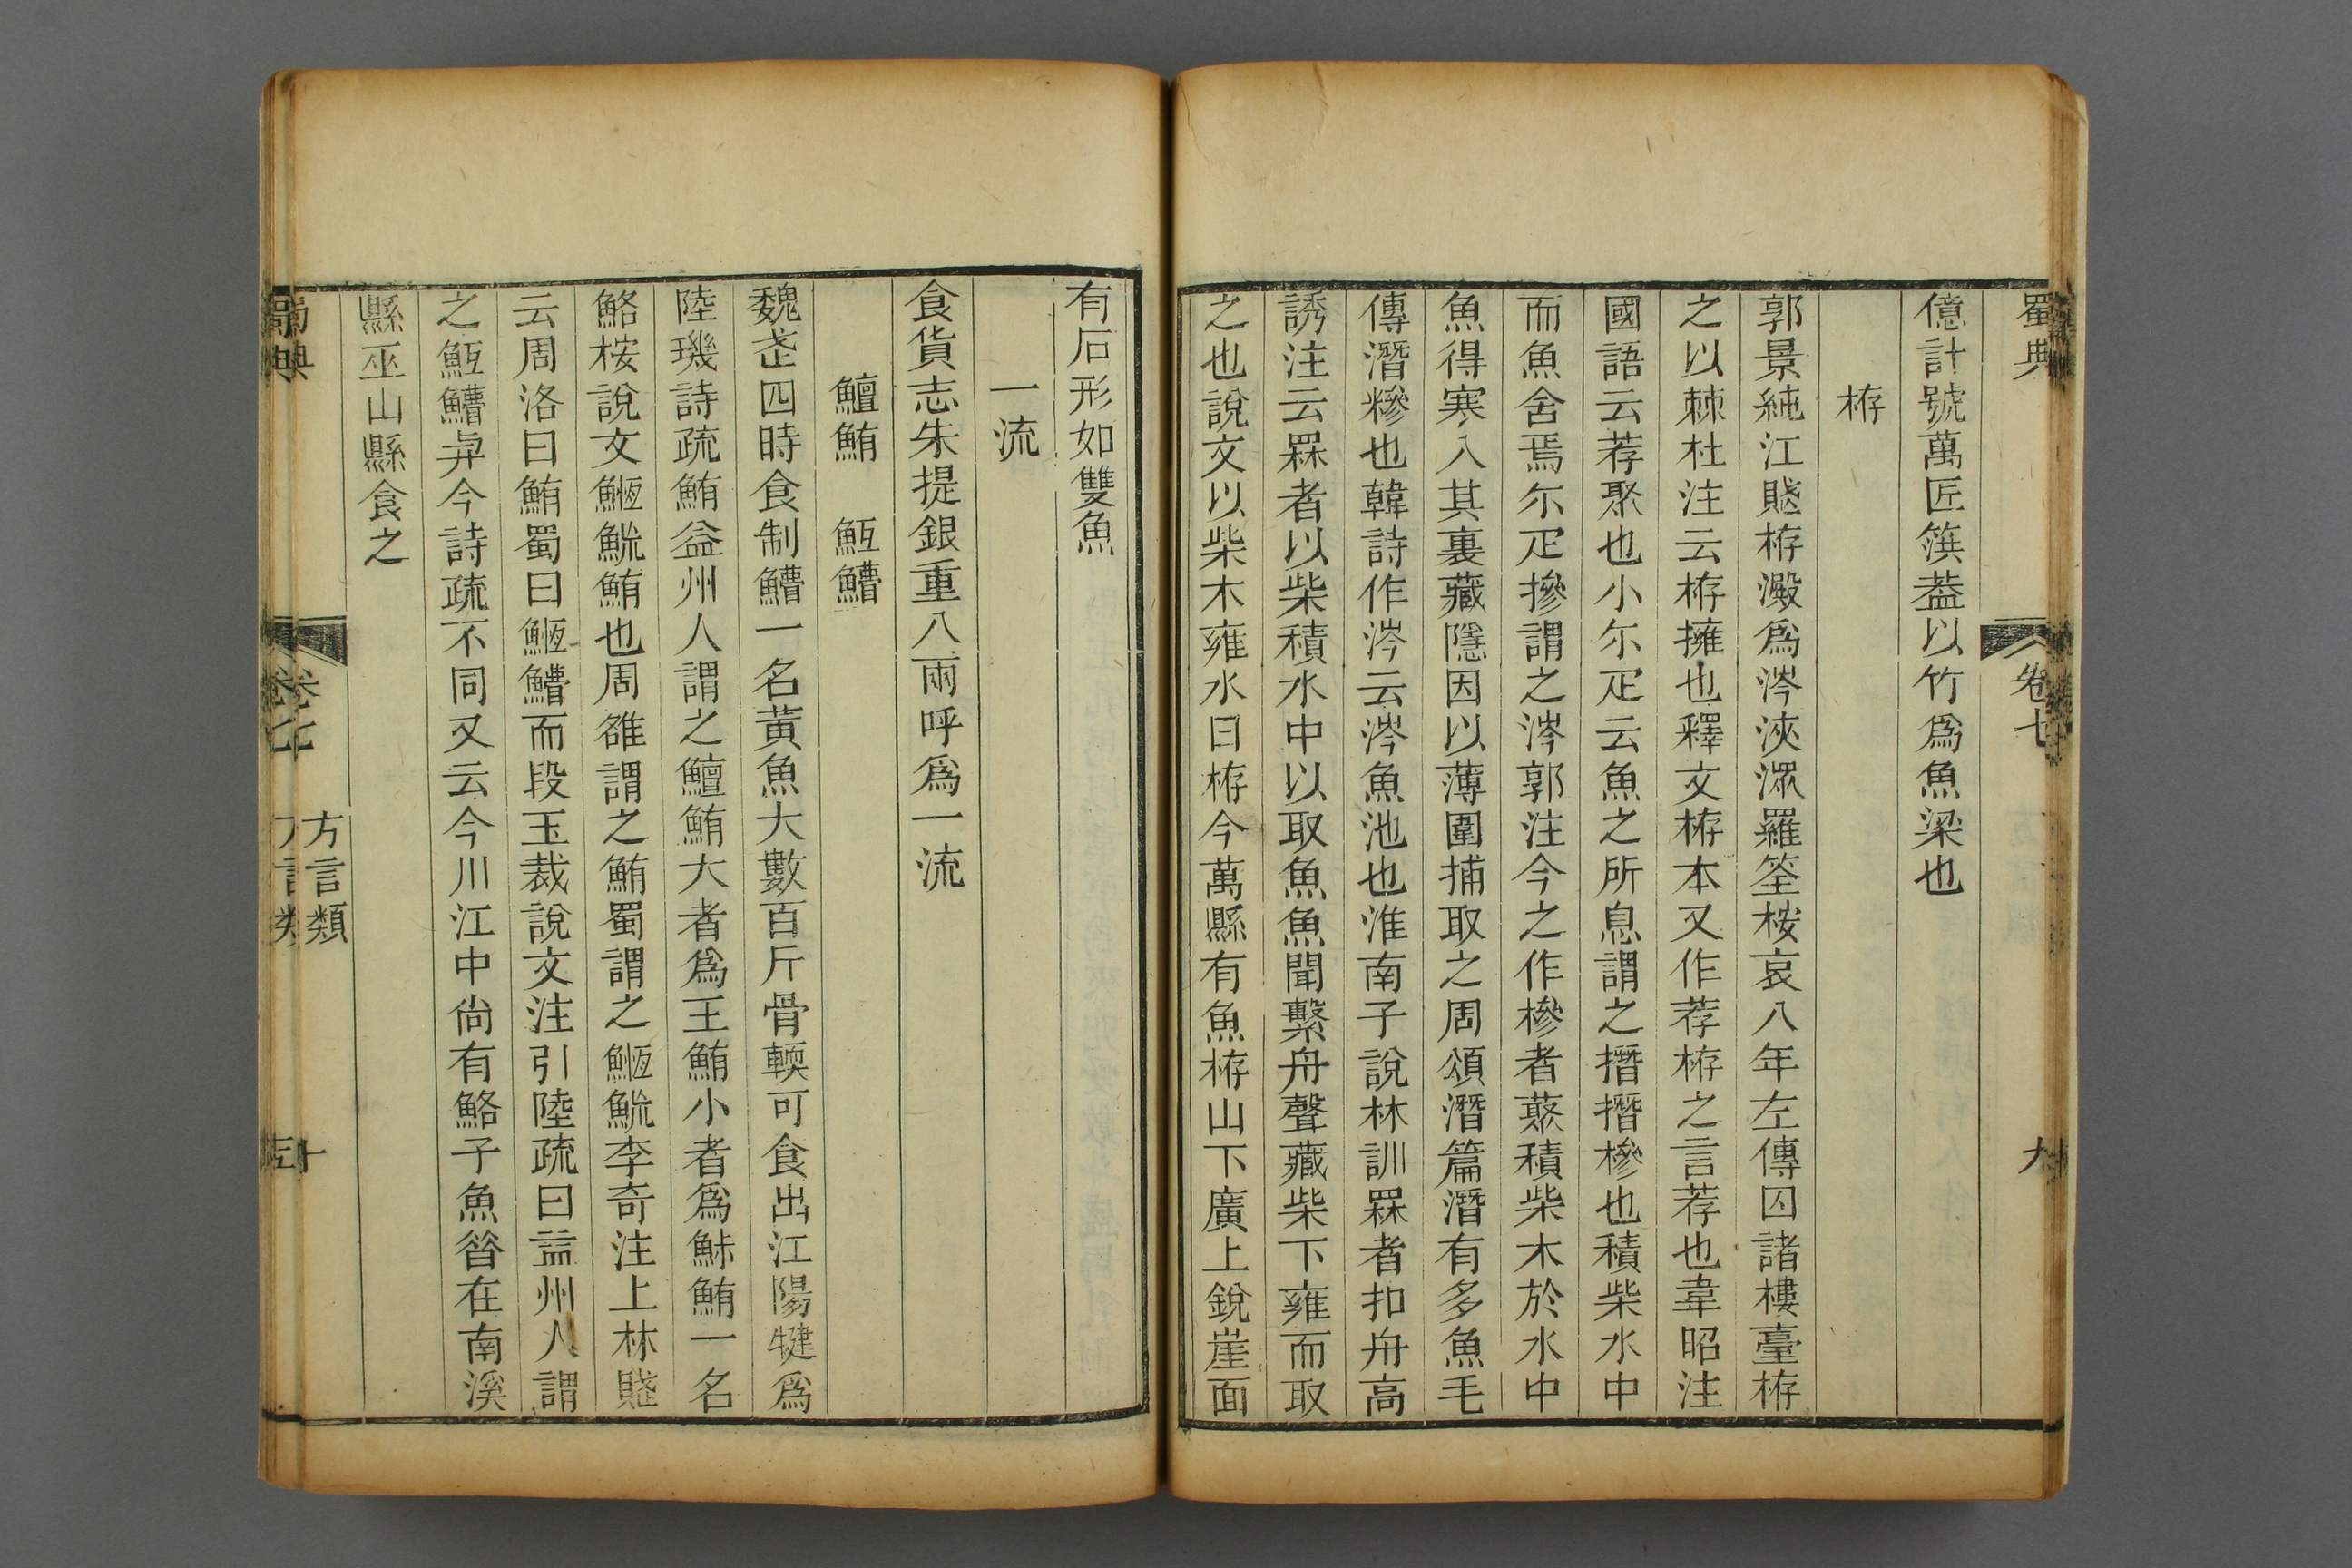 蜀典
卷七
九
億計號萬匠篊葢以竹爲魚梁也
栫
郭景純江賦栫澱爲涔浹潀羅筌桉哀八年左傳囚諸樓臺栫
之以棘杜注云栫擁也釋文栫本又作荐栫之言荐也韋昭注
國語云荐聚也小尓疋云魚之所息謂之㩙㩙槮也積柴水中
而魚舍焉尓疋摻謂之涔郭注今之作槮者藂積柴木於水中
魚得寒入其裏藏隱因以薄圍捕取之周頌潛篇潛有多魚毛
傳潛糝也韓詩作涔云涔魚池也淮南子說林訓罧者扣舟高
誘注云罧者以柴積水中以取魚魚聞繫舟聲藏柴下雍而取
之也說文以柴木雍水曰栫今萬縣有魚栫山下廣上銳崖面
有石形如雙魚
一流
食貨志朱提銀重八兩呼爲一流
鱣鮪　䱎䲧
魏武四時食制䲧一名黃魚大數百斤骨輭可食出江陽犍爲
陸璣詩疏鮪益州人謂之鱣鮪大者爲王鮪小者爲鮛鮪一名
鮥桉說文䱭䲛鮪也周雒謂之鮪蜀謂之䱭䲛李奇注上林賦
云周洛曰鮪蜀曰䱭䲧而段玉裁說文注引陸疏曰益州人謂
之䱎䲧㒷今詩疏不同又云今川江中尙有鮥子魚昝在南溪
縣巫山縣食之
蜀典
卷七
方言類
十